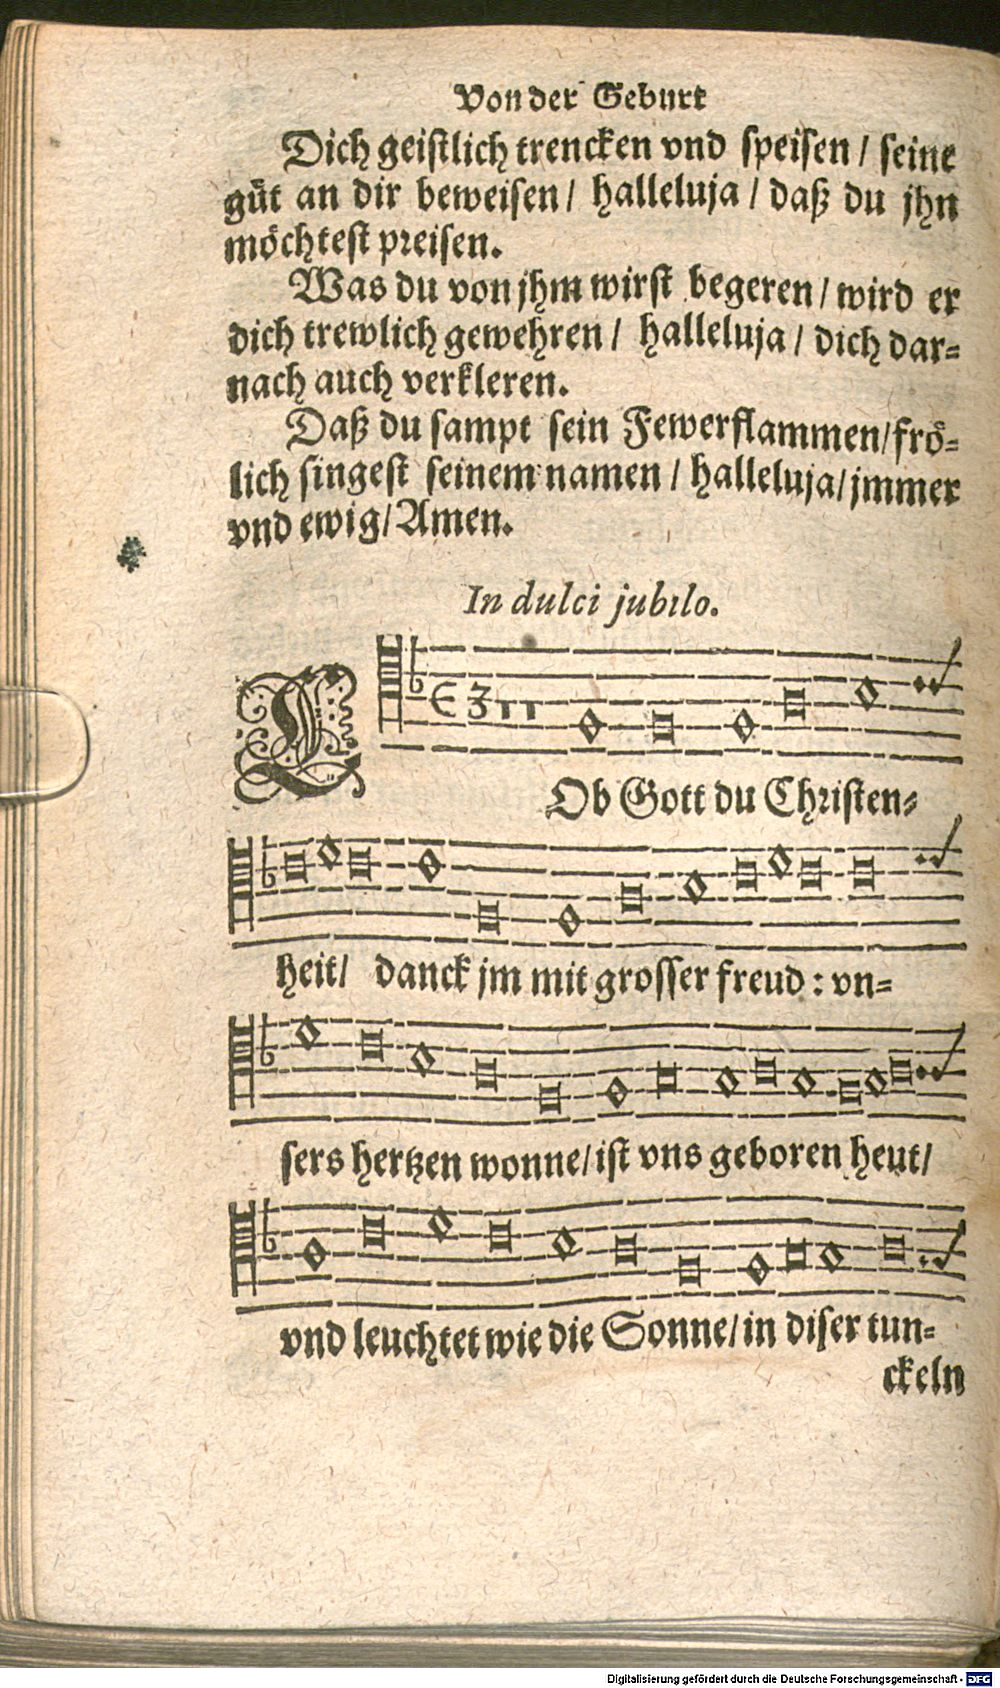 Von der Geburt
Dich geistlich trencken vnd speisen / seine
güt an dir beweisen / halleluja / daß du jhn
möchtest preisen.
Was du von jhm wirst begeren / wird er
dich trewlich gewehren / halleluja / dich dar=
nach auch verkleren.
Daß du sampt sein Fewerflammen / frö=
lich singest seinem namen / halleluja / jmmer
vnd ewig / Amen.
In dulci jubilo.
LOb Gott du Christen=
heit / danck jm mit grosser freud : vn=
sers hertzen wonne / ist vns geboren heut /
vnd leuchtet wie die Sonne / in diser tun=
ckeln
Digitalisierung gefördert durch die Deutsche Forschungsgemeinschaft - DFG